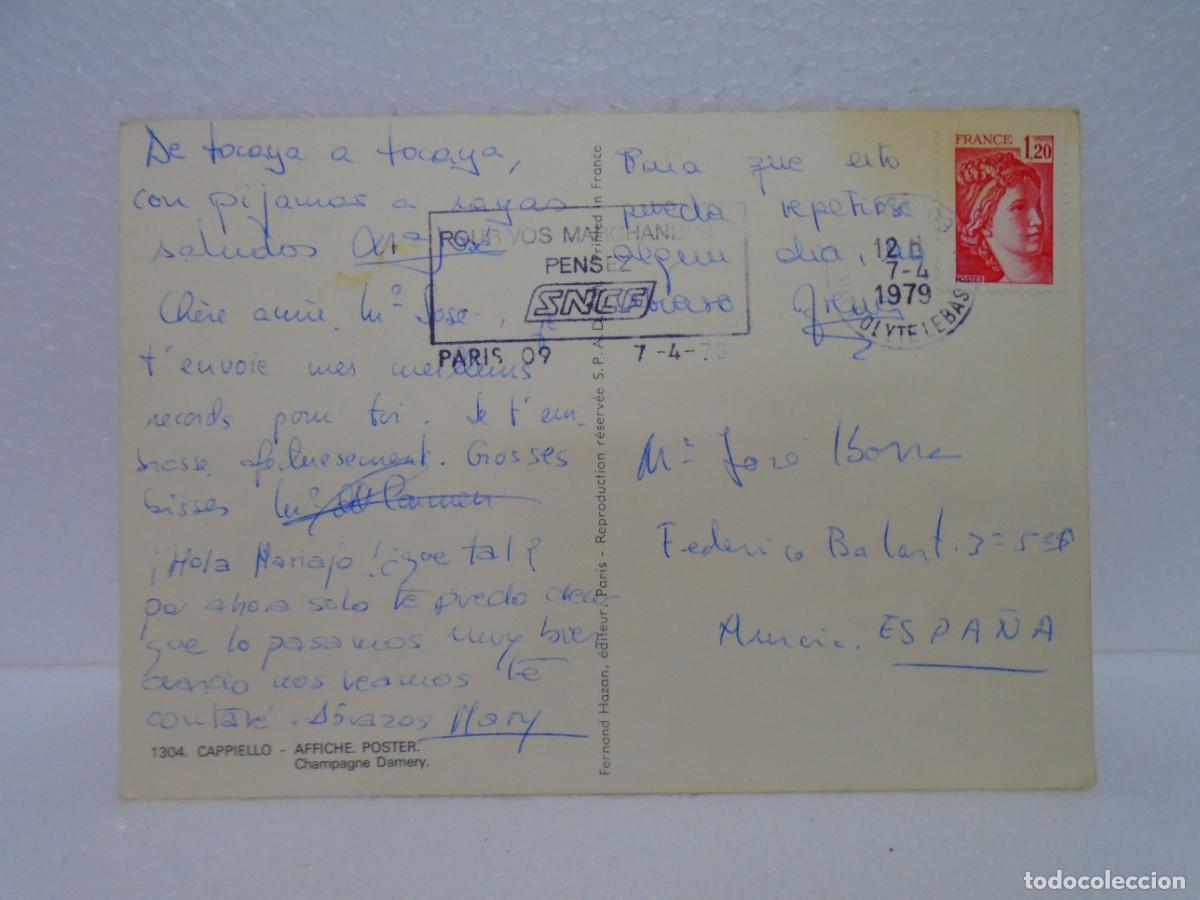 De tocaya a tocaya,
con pijamas a rayas
saludos Mª José
Chère amie Mª Jose, je
t'envoie mes meilleurs
records pour toi. Je t'em-
brasse afectuesement. Grosses
bisses Mª Carmen
¡Hola Mariajo! ¿que tal?
por ahora solo te puedo decir
que lo pasamos muy bien
cuando nos veamos te
contaré. Abrazos Mary
1304. CAPPIELLO - AFFICHE. POSTER.
Champagne Damery.
POUR VOS MARCHANDISES
PENSEZ
SNCF
PARIS 09 7-4-79
Fernand Hazan, éditeur, Paris - Reproduction réservée S.P.A.D. Printed in France
Para que esto
pueda repetirse
algun dia, un
abrazo
FRANCE
1,20
POSTES
12 H
7-4
1979
Mª José
Federico Balart. 3=5º
Murcia. ESPAÑA
todocoleccion